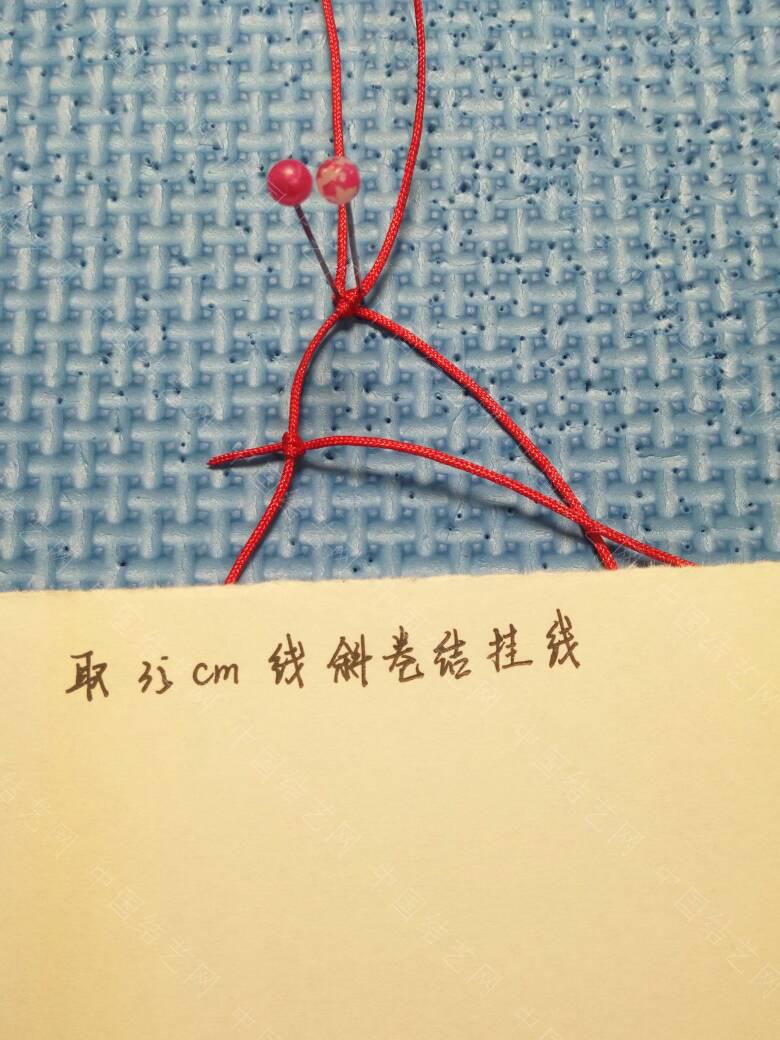 取35cm线斜卷结挂线
中国结艺网